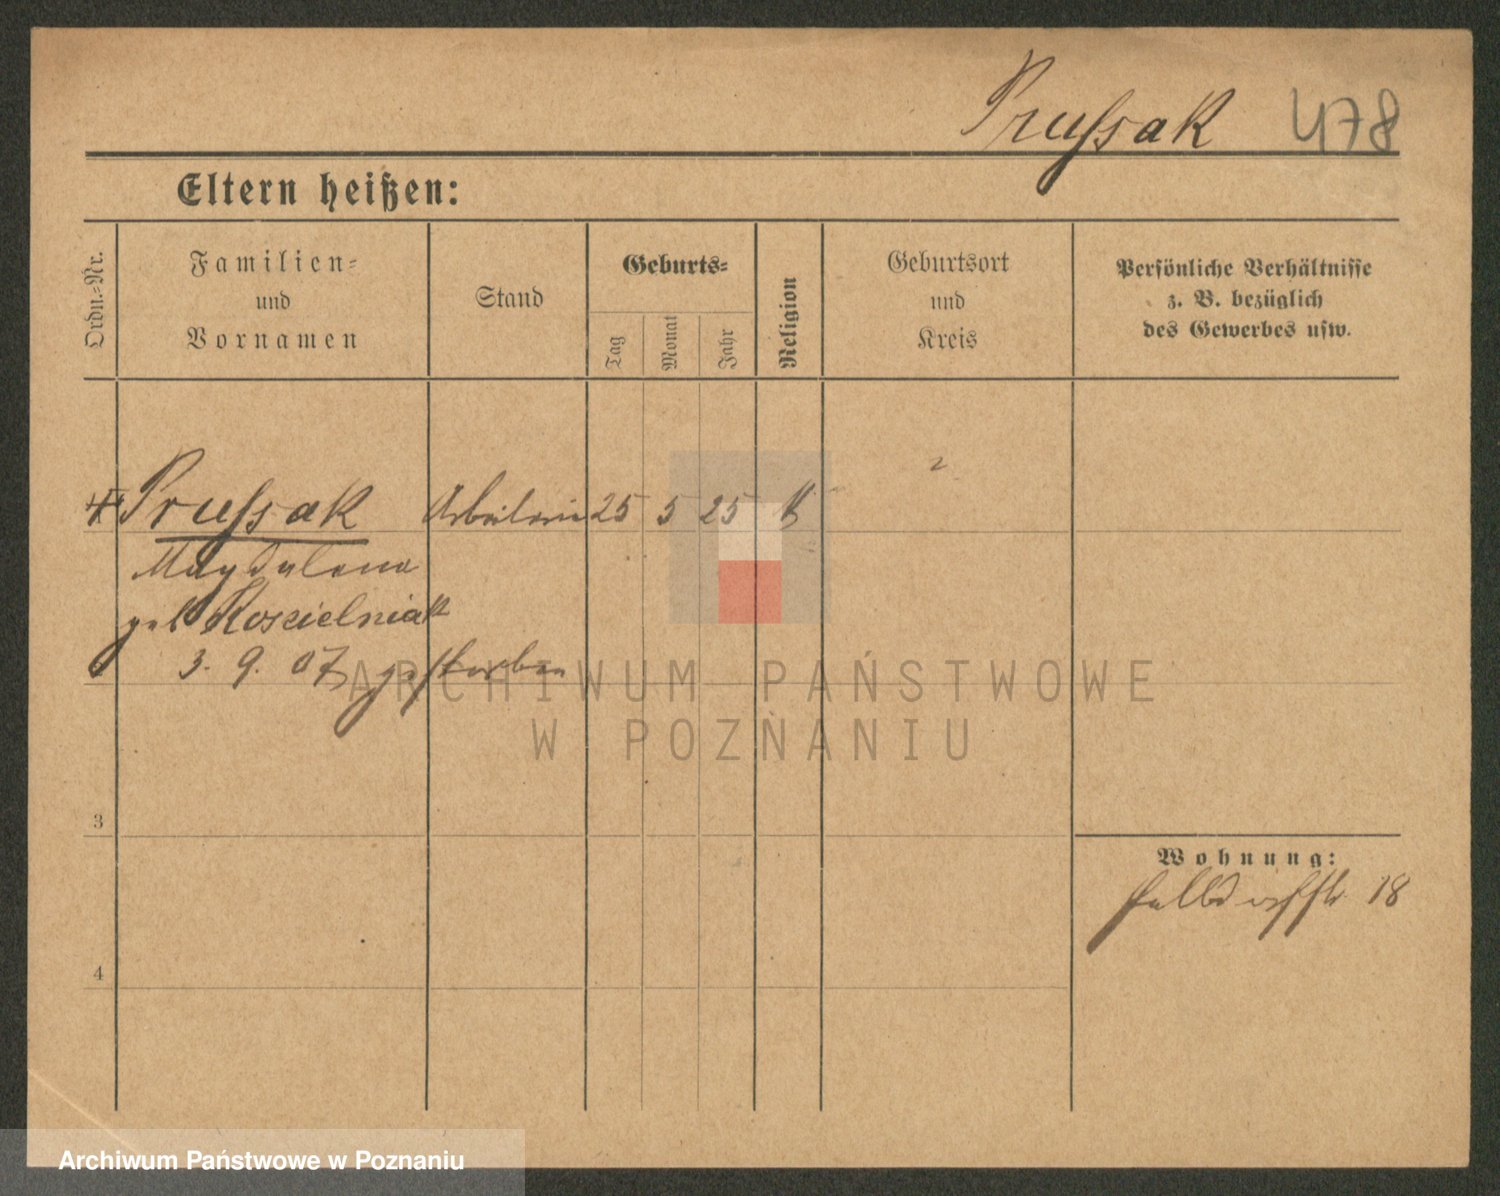 Prussak 478
Eltern heißen:
Ordn.-Nr.
Familien-
und
Vornamen
Stand
Geburts-
Tag
Monat
Jahr
Religion
Geburtsort
und
Kreis
Persönliche Verhältnisse
z. B. bezüglich
des Gewerbes usw.
Prussak Arbeiterin 25 5 25 k
Magdalena
geb Koscielniak
3. 9. 07 gestorben
ARCHIWUM PAŃSTWOWE
W POZNANIU
3
Wohnung:
Halbdorfstr. 18
4
Archiwum Państwowe w Poznaniu